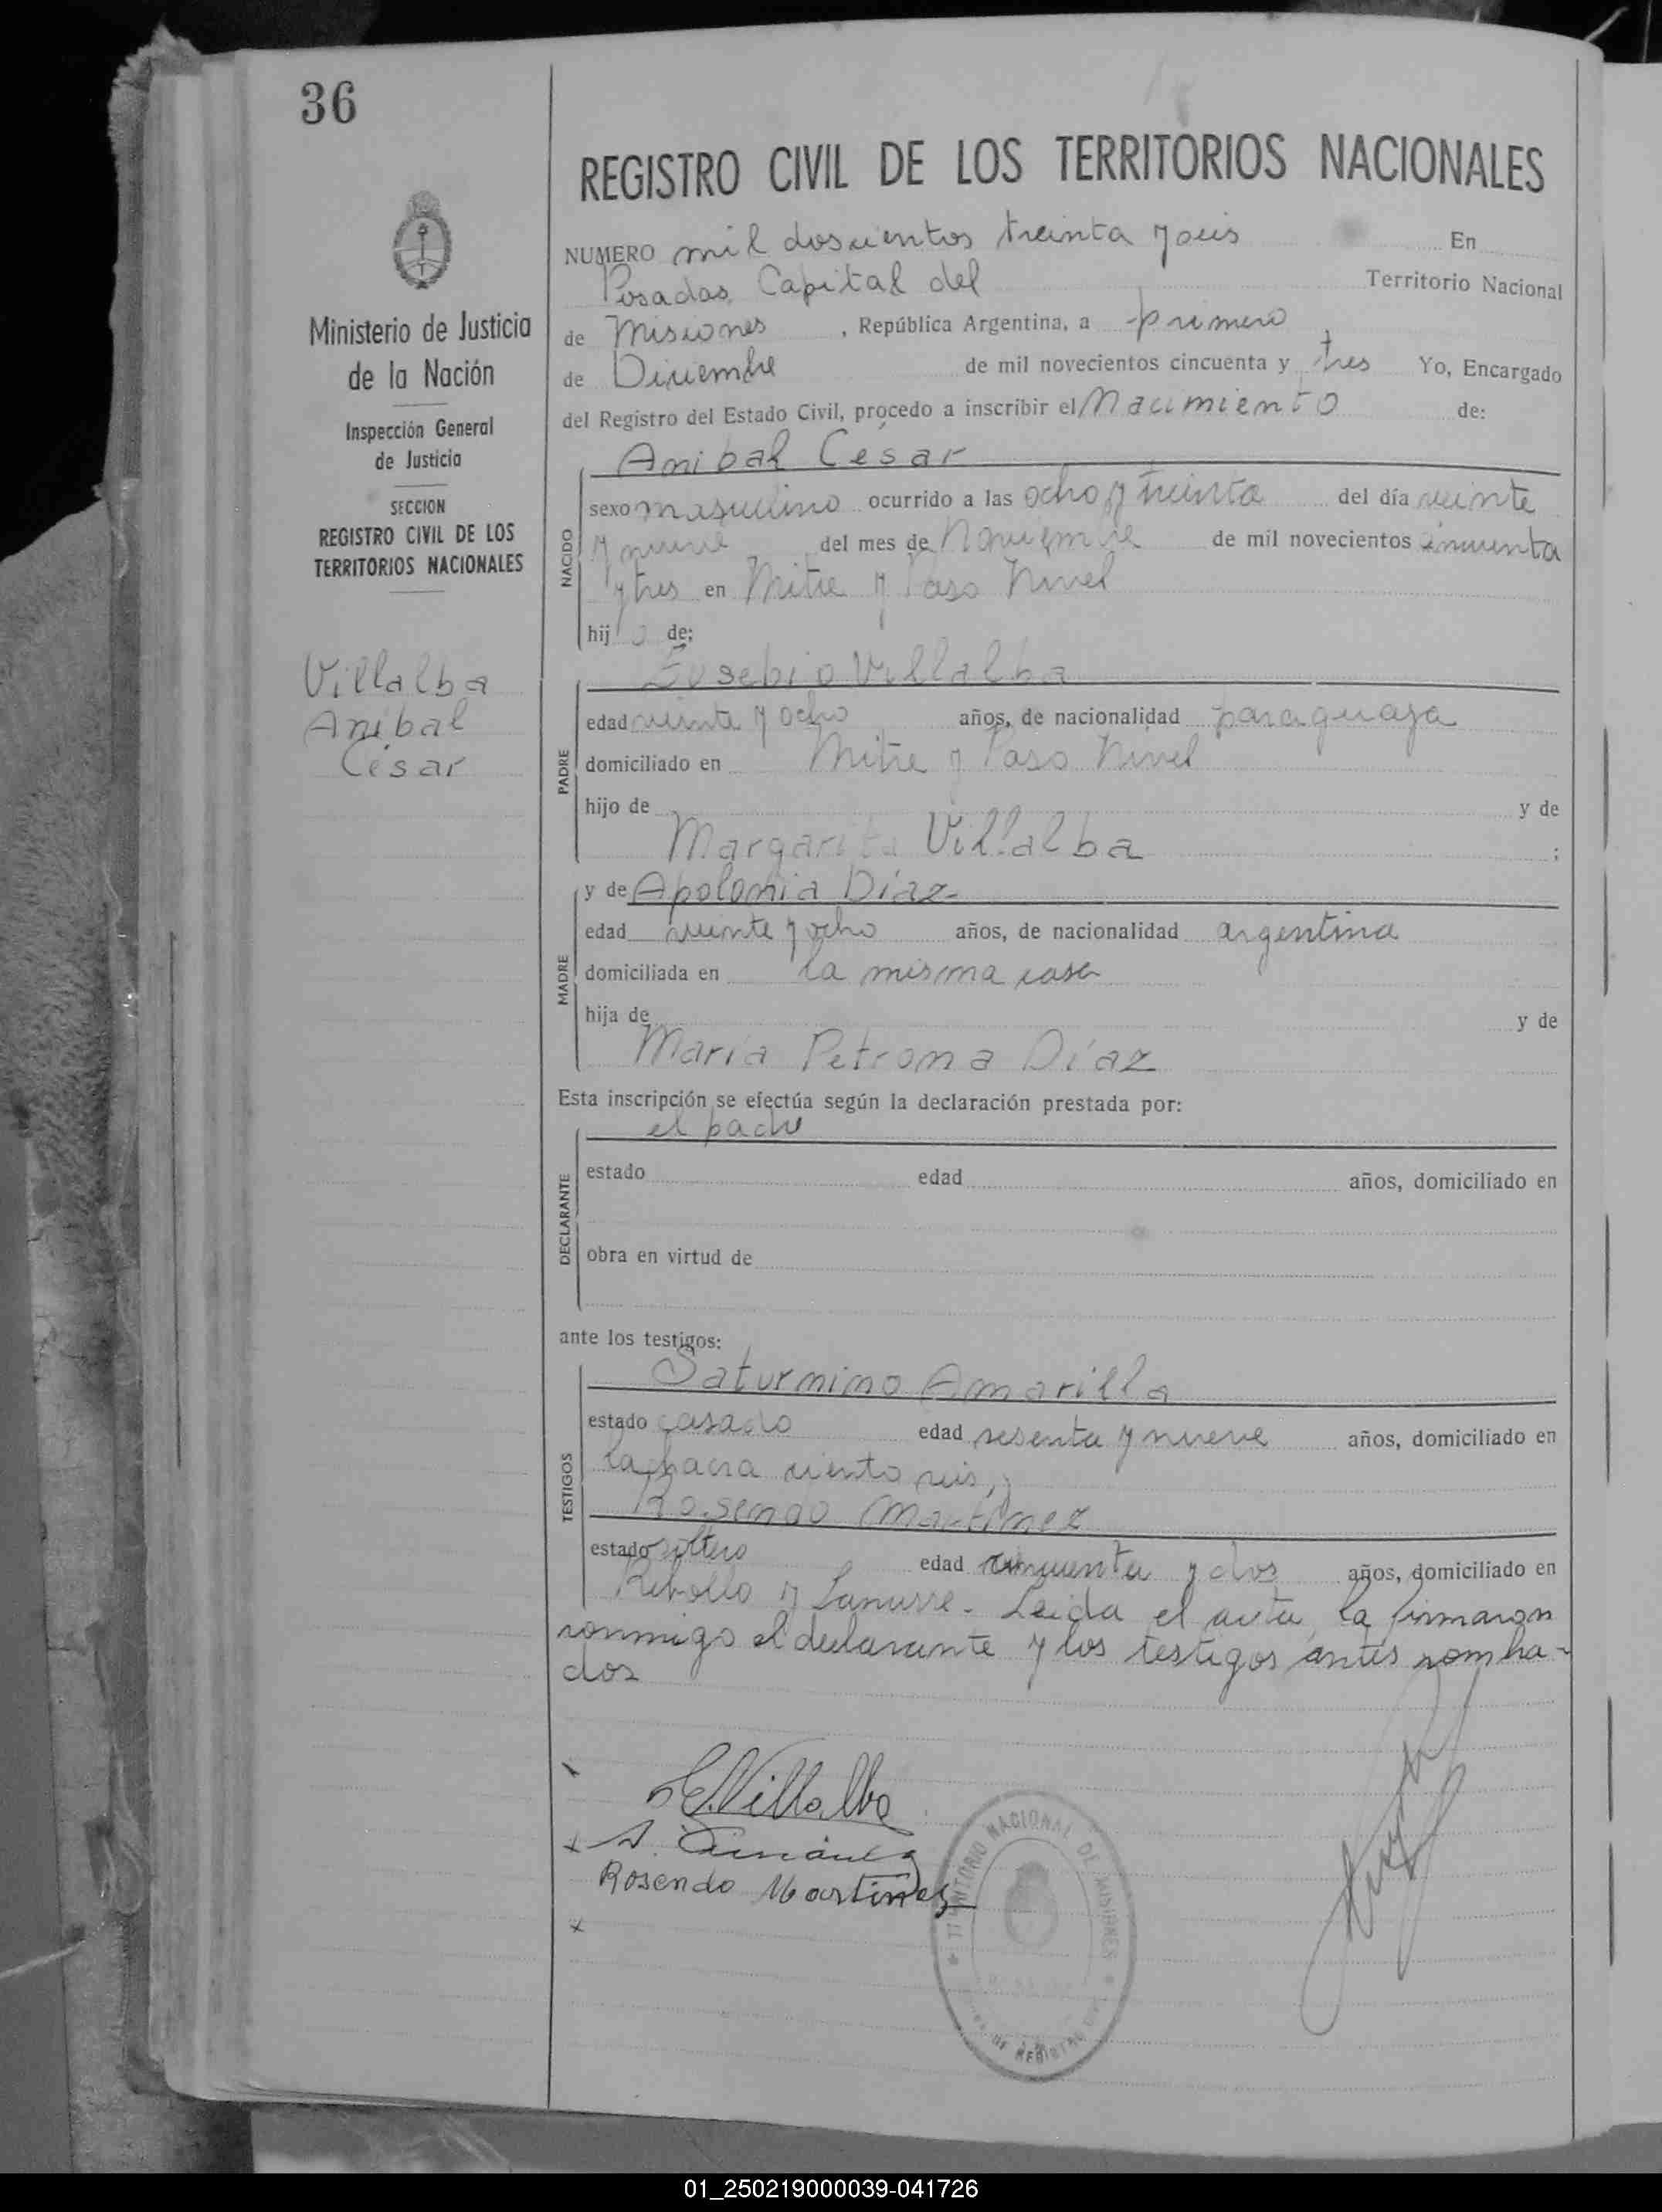 36
REGISTRO CIVIL DE LOS TERRITORIOS NACIONALES
Ministerio de Justicia
de la Nación
Inspección General
de Justicia
SECCION
REGISTRO CIVIL DE LOS
TERRITORIOS NACIONALES
Villalba
Anibal
César
NUMERO mil doscientos treinta y seis En
Posadas Capital del Territorio Nacional
de Misiones , República Argentina, a primero
de Diciembre de mil novecientos cincuenta y tres Yo, Encargado
del Registro del Estado Civil, procedo a inscribir el Nacimiento de:
Anibal César
NACIDO
sexo masculino ocurrido a las ocho y treinta del día veinte
y nueve del mes de Noviembre de mil novecientos cincuenta
y tres en Mitre y Paso Nivel
hijo de:
Eusebio Villalba
PADRE
edad veinte y ocho años, de nacionalidad paraguaya
domiciliado en Mitre y Paso Nivel
hijo de y de
Margarita Villalba ;
y de Apolonia Díaz
MADRE
edad veinte y ocho años, de nacionalidad argentina
domiciliada en la misma casa
hija de y de
María Petrona Díaz
Esta inscripción se efectúa según la declaración prestada por:
el padre
DECLARANTE
estado edad años, domiciliado en
obra en virtud de
ante los testigos:
Saturnino Amarilla
TESTIGOS
estado casado edad sesenta y nueve años, domiciliado en
la chacra ciento seis, y
Rosendo Martinez
estado soltero edad cincuenta y dos años, domiciliado en
Rebollo y Lanusse. Leida el acta, la firmaron
conmigo el declarante y los testigos antes nombra-
dos
E. Villalba
Rosendo Martinez
TERRITORIO NACIONAL DE MISIONES
DE REGISTRO
01_250219000039-041726